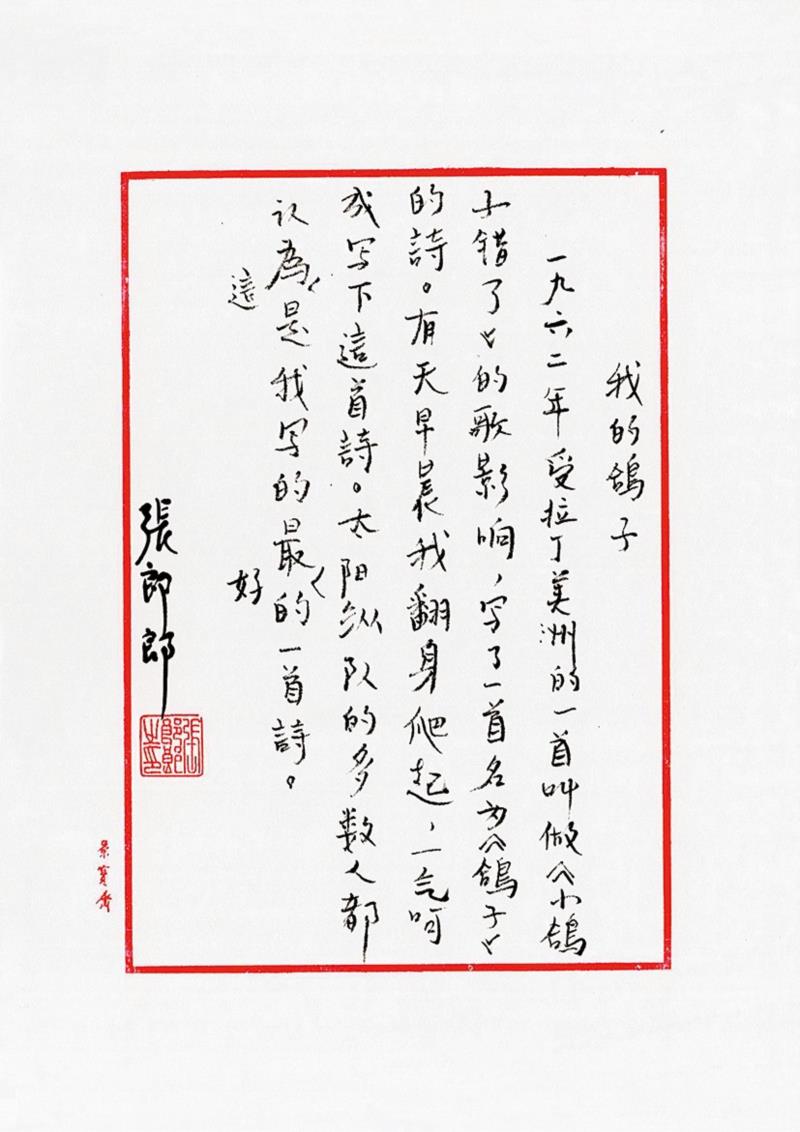 我的鴿子
一九六二年受拉丁美洲的一首叫做《小鴿
子错了》的歌影响，写了一首名为《鴿子》
的詩。有天早晨我翻身爬起，一气呵
成写下這首詩。太阳纵队的多数人都
认為這是我写的最好的一首詩。
張郎郎
張郎郎之印